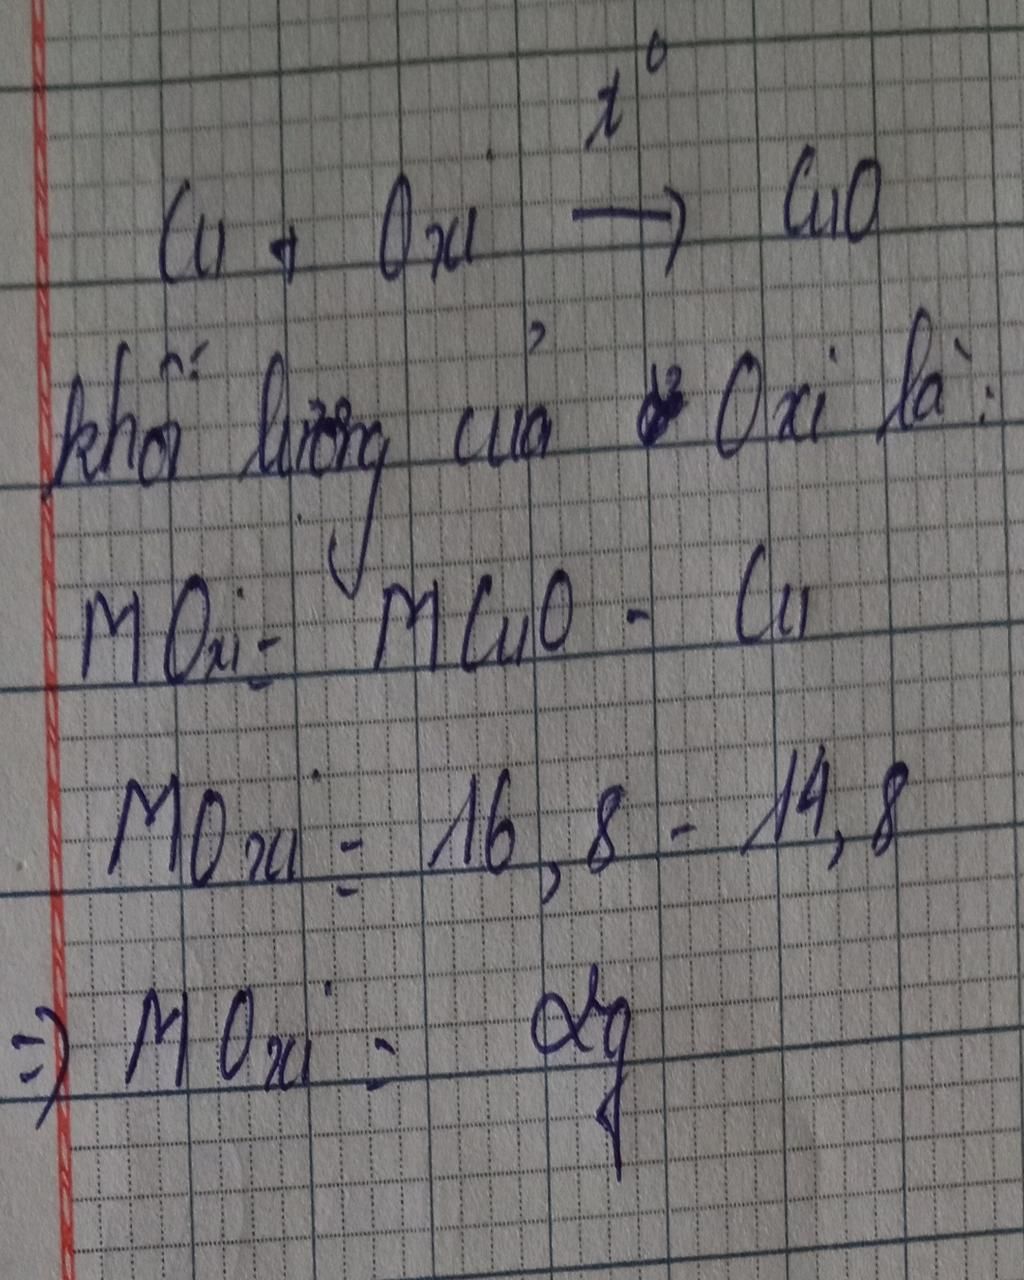 t°
Cu + Oxi → CuO
khối lượng của Oxi là:
MOxi = MCuO - Cu
MOxi = 16,8 - 14,8
=> MOxi = 2g